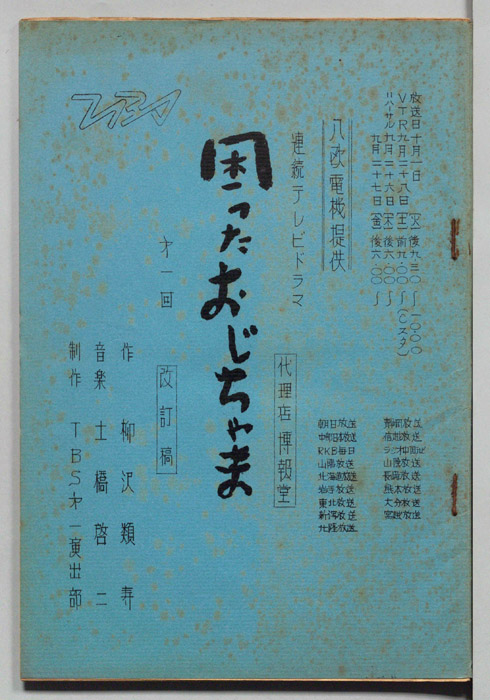 放送日十月一日(火)後九.三〇〜一〇.〇〇
VTR九月二十八日(土)前九.〇〇〜(Cスタ)
リハーサル九月二十六日(木)後六.〇〇〜
九月二十七日(金)後六.〇〇〜
八欧電機提供
連続テレビドラマ
困ったおじちゃま
才一回
改訂稿
代理店博報堂
作 柳沢類寿
音楽 土橋啓二
制作 TBS才一演出部
TBS
朝日放送
中部日本放送
RKB毎日
山陽放送
北海道放送
岩手放送
東北放送
新潟放送
北陸放送
山陰放送
長崎放送
熊本放送
大分放送
宮崎放送